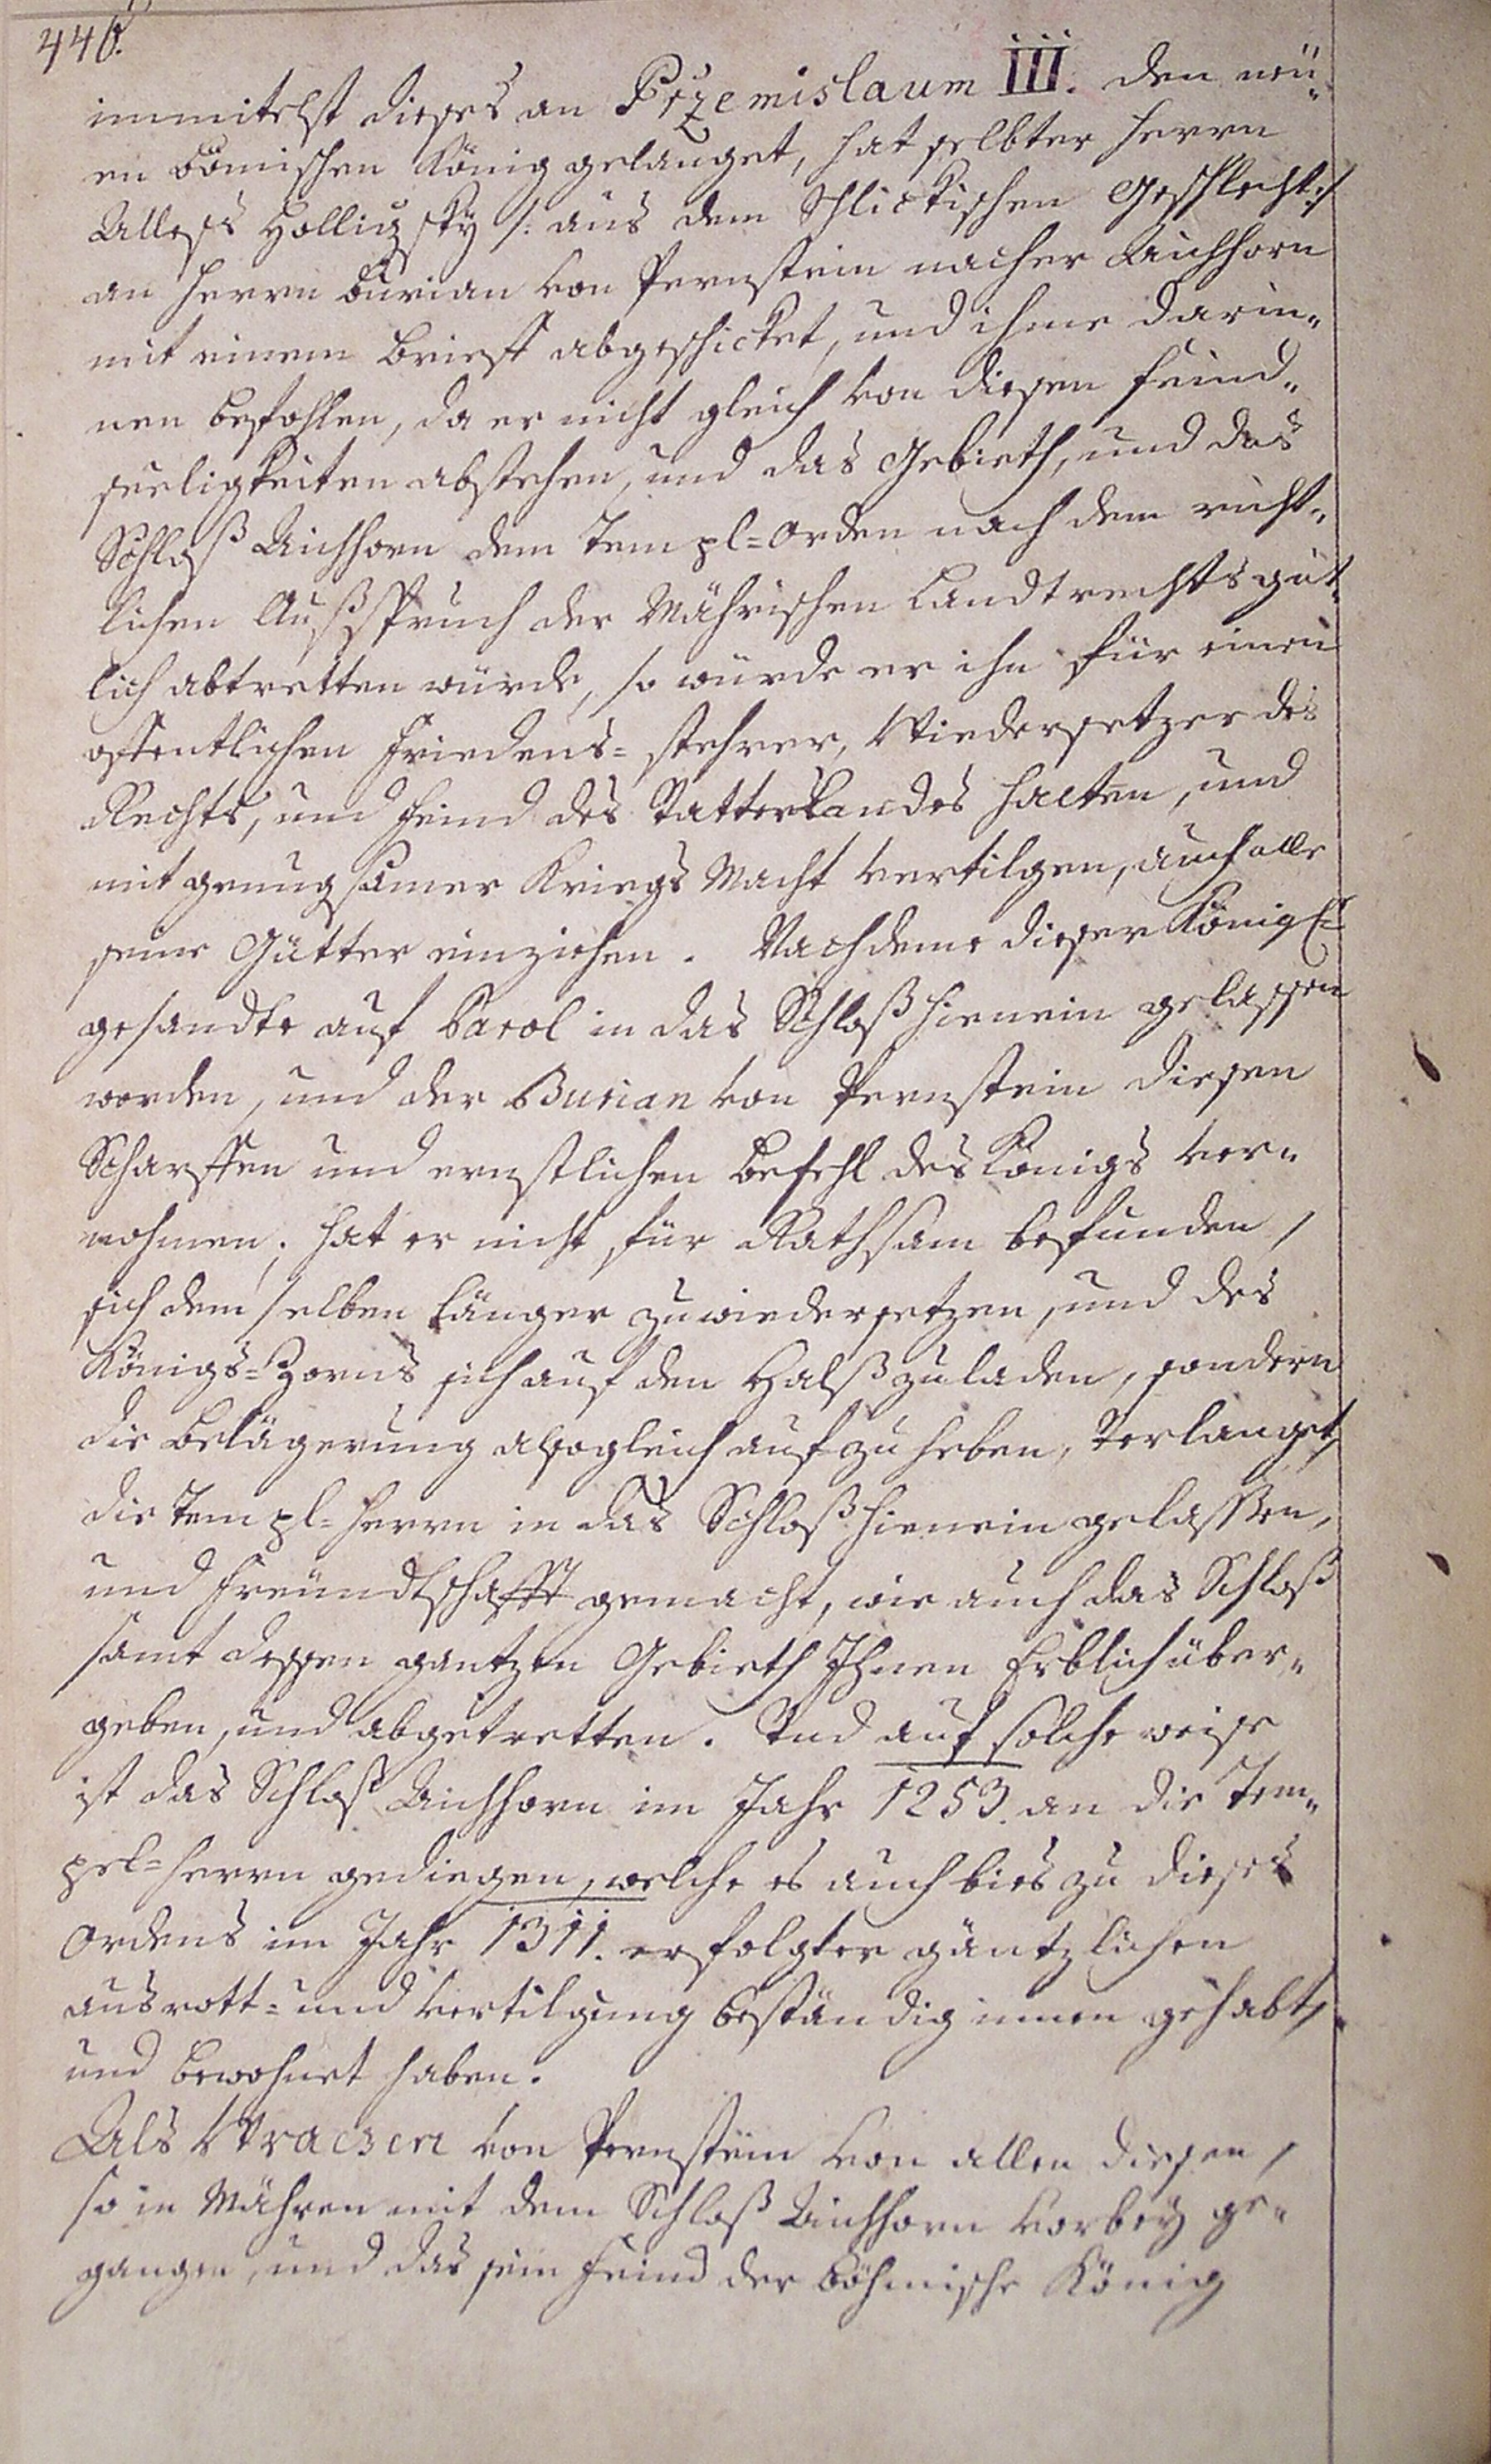 446.
immitelst dieses an Przemislaum III. den neü„
en Bömischen König gelanget, hat selbter Herrn
Allesch Holliczky /: aus dem Schlickischen Geschlecht :/
an Herrn Burian von Pernstein nacher Aichhorn
mit einem Brieff abgeschicket, und ihme darin„
nen befohlen, da er nicht gleich von diesen feind„
seeligkeiten abstehen, und das Gebieth, und das
Schloß Aichhorn dem Templ=Orden nach dem richt„
lichen Außspruch der Mährischen Landtrechts güt„
lich abtretten würde, so würde er ihn für einen
offentlichen Friedens=stehrer, Wiedersetzer des
Rechts, und Feind des Vatterlandes halten, und
mit genugsamer Kriegs Macht vertilgen, auch alle
seine Gütter einziehen. Nachdeme dieser Königl:
gesandte auf Parol in das Schloß hienein gelassen
worden, und der Burian von Pernstein diesen
Scharffen und ernstlichen Befehl des Königs ver„
nohmen, hat er nicht für Rathsam befunden,
sich demselben länger zuwiedersetzen, und des
Königs=Zorns sich auf den Halß zuladen, sondern
die Belägerung alsogleich auf zu heben, verlanget,
die Templ=Herrn in das Schloß hienein gelassen,
und Freündtschafft gemacht, wie auch das Schloß
samt dessen gantzen Gebieth Ihnen Erblich über„
geben, und abgetretten. Und auf solche weise
ist das Schloß Aichhorn im Jahr 1253. an die Tem„
pel=Herrn gediegen, welche es auch bies zu dieses
Ordens im Jahr 1311. erfolgter gäntzlichen
ausrott= und Vertilgung beständig innen gehabt,
und bewohnet haben.
Als Wraczen von Pernstein von allen diesen,
so in Mähren mit dem Schloß Aichhorn vorbey ge„
gangen, und das sein Feind der böhmische König